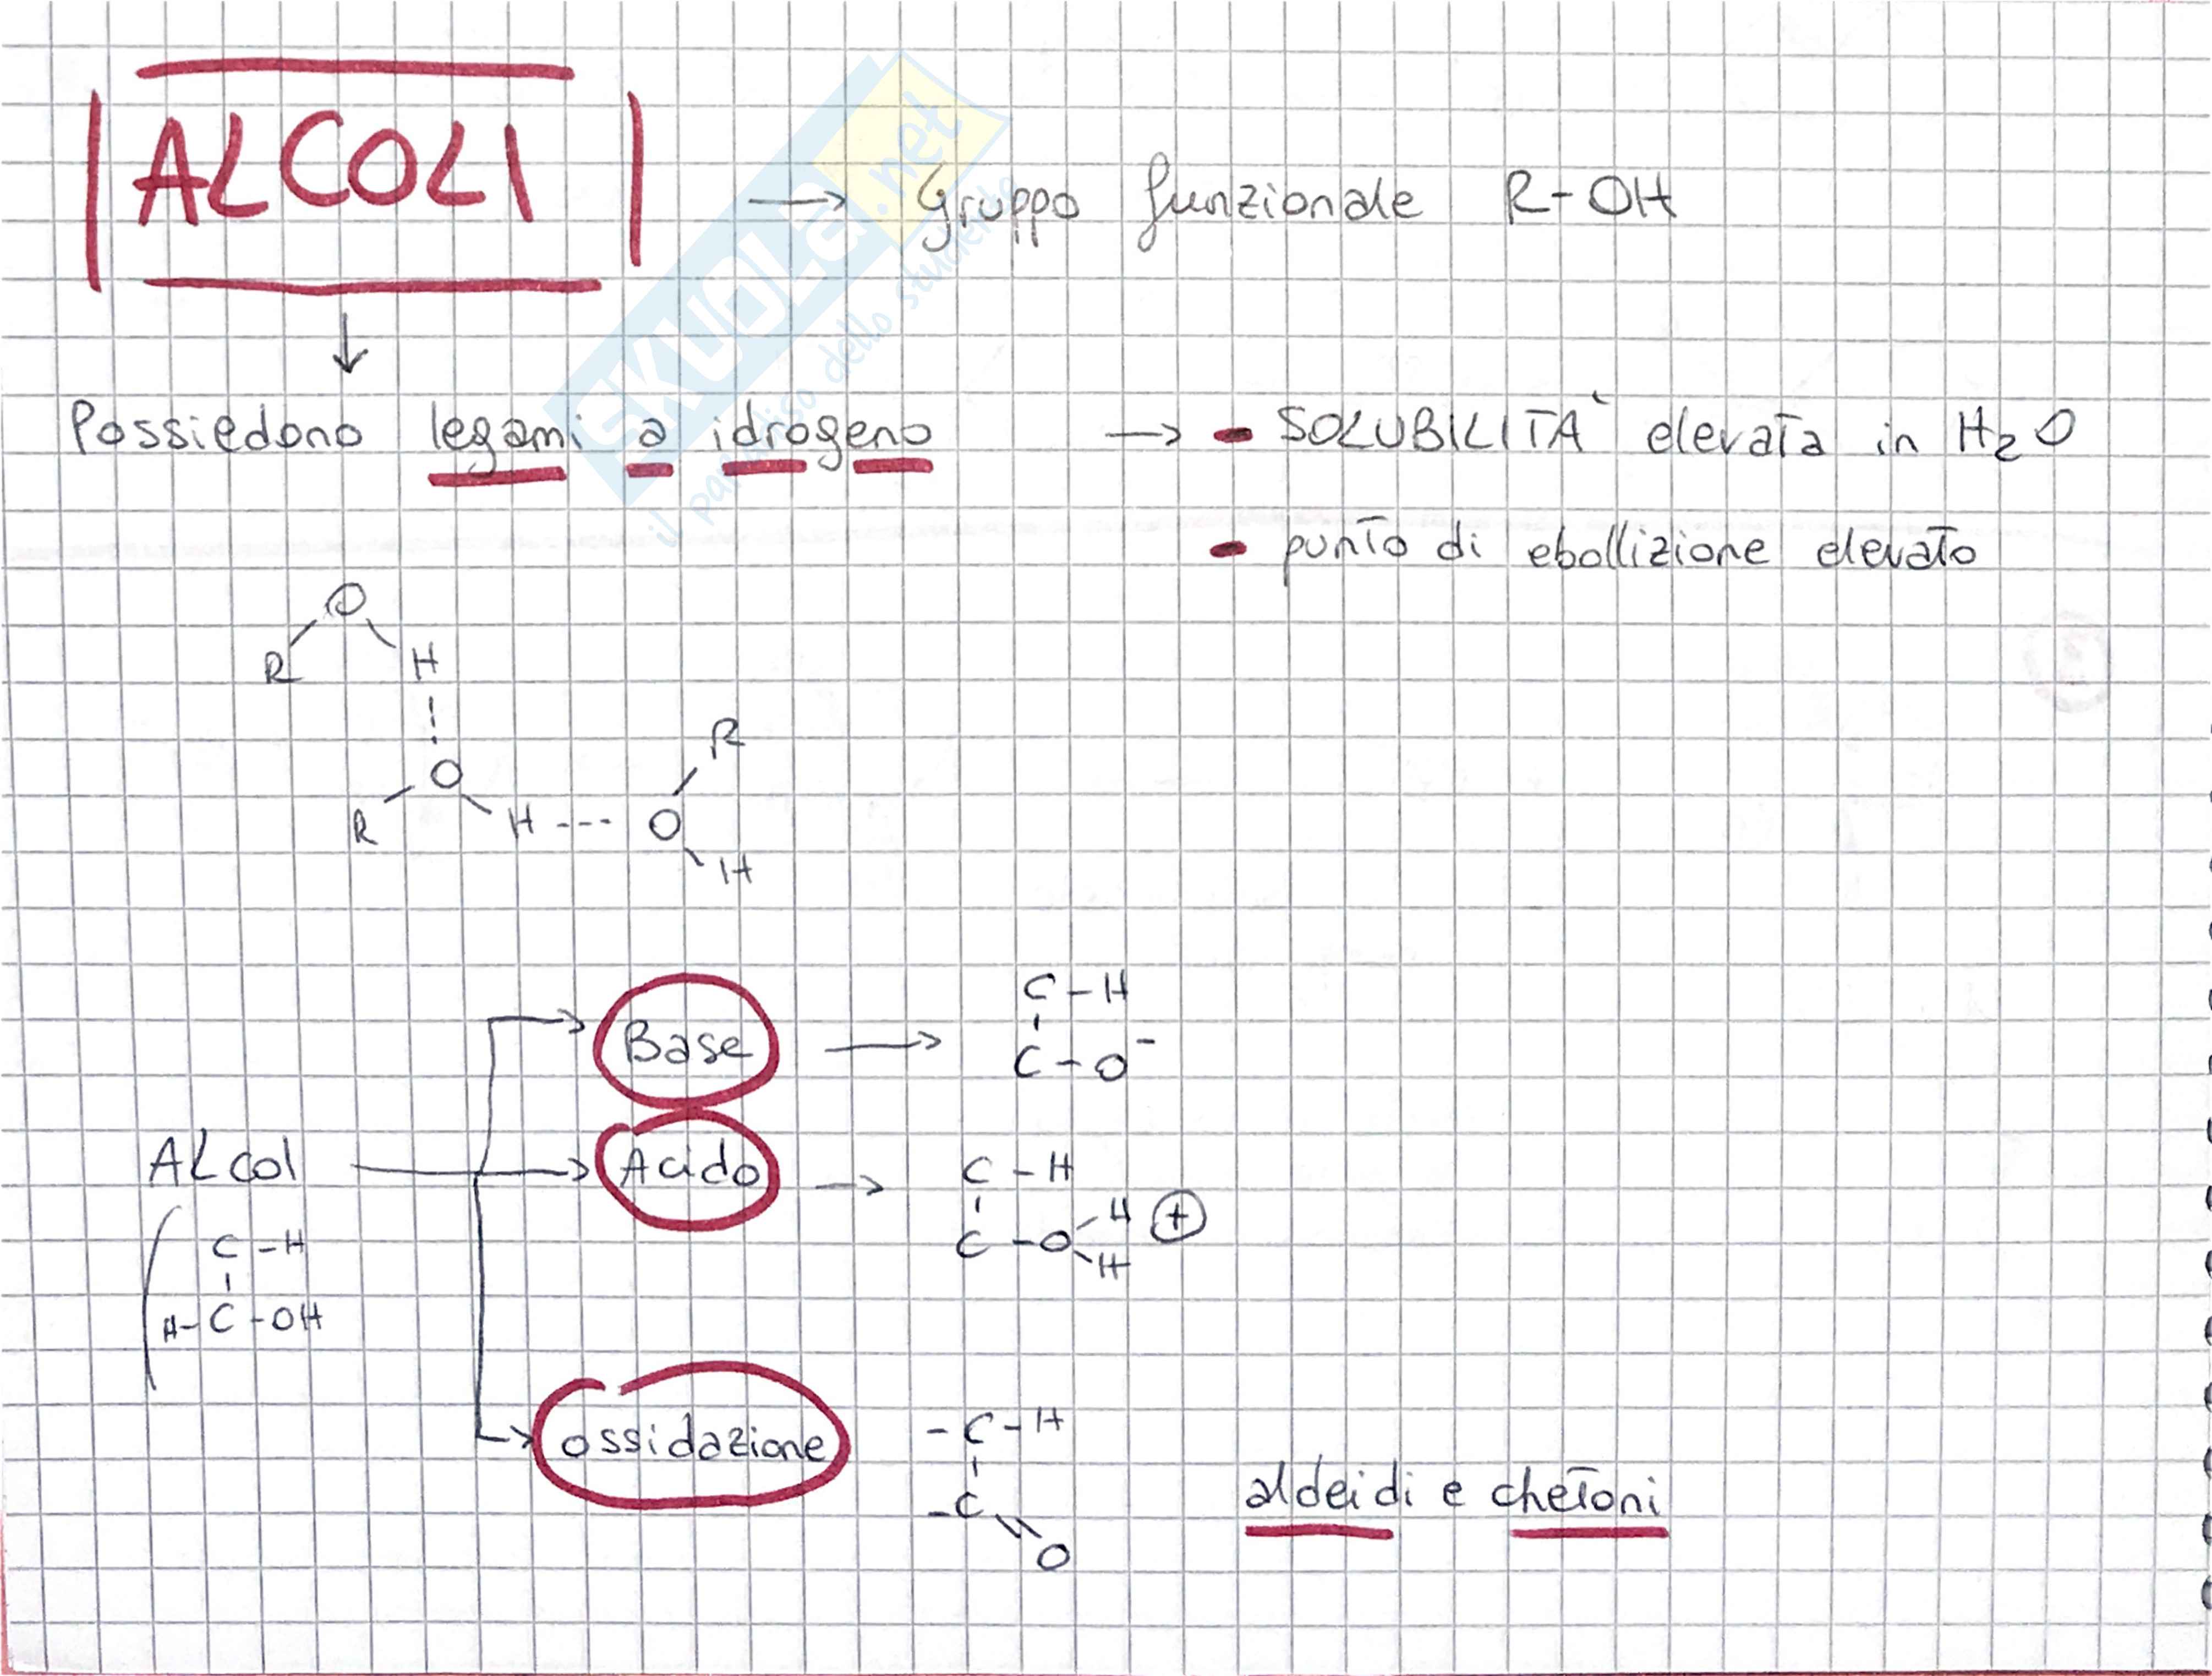 ALCOLI → Gruppo funzionale R-OH
↓
Possiedono legami a idrogeno → - SOLUBILITA` elevata in H2O
- punto di ebollizione elevato
O
R H
R
O
R H --- O
H
C-H
Base → C-O⁻
ALcol → Acido → C-H
C-O H H ⊕
C-H
H-C-OH
ossidazione -C-H
-C=O aldeidi e chetoni
SKUOLA.net
il paradiso dello studente